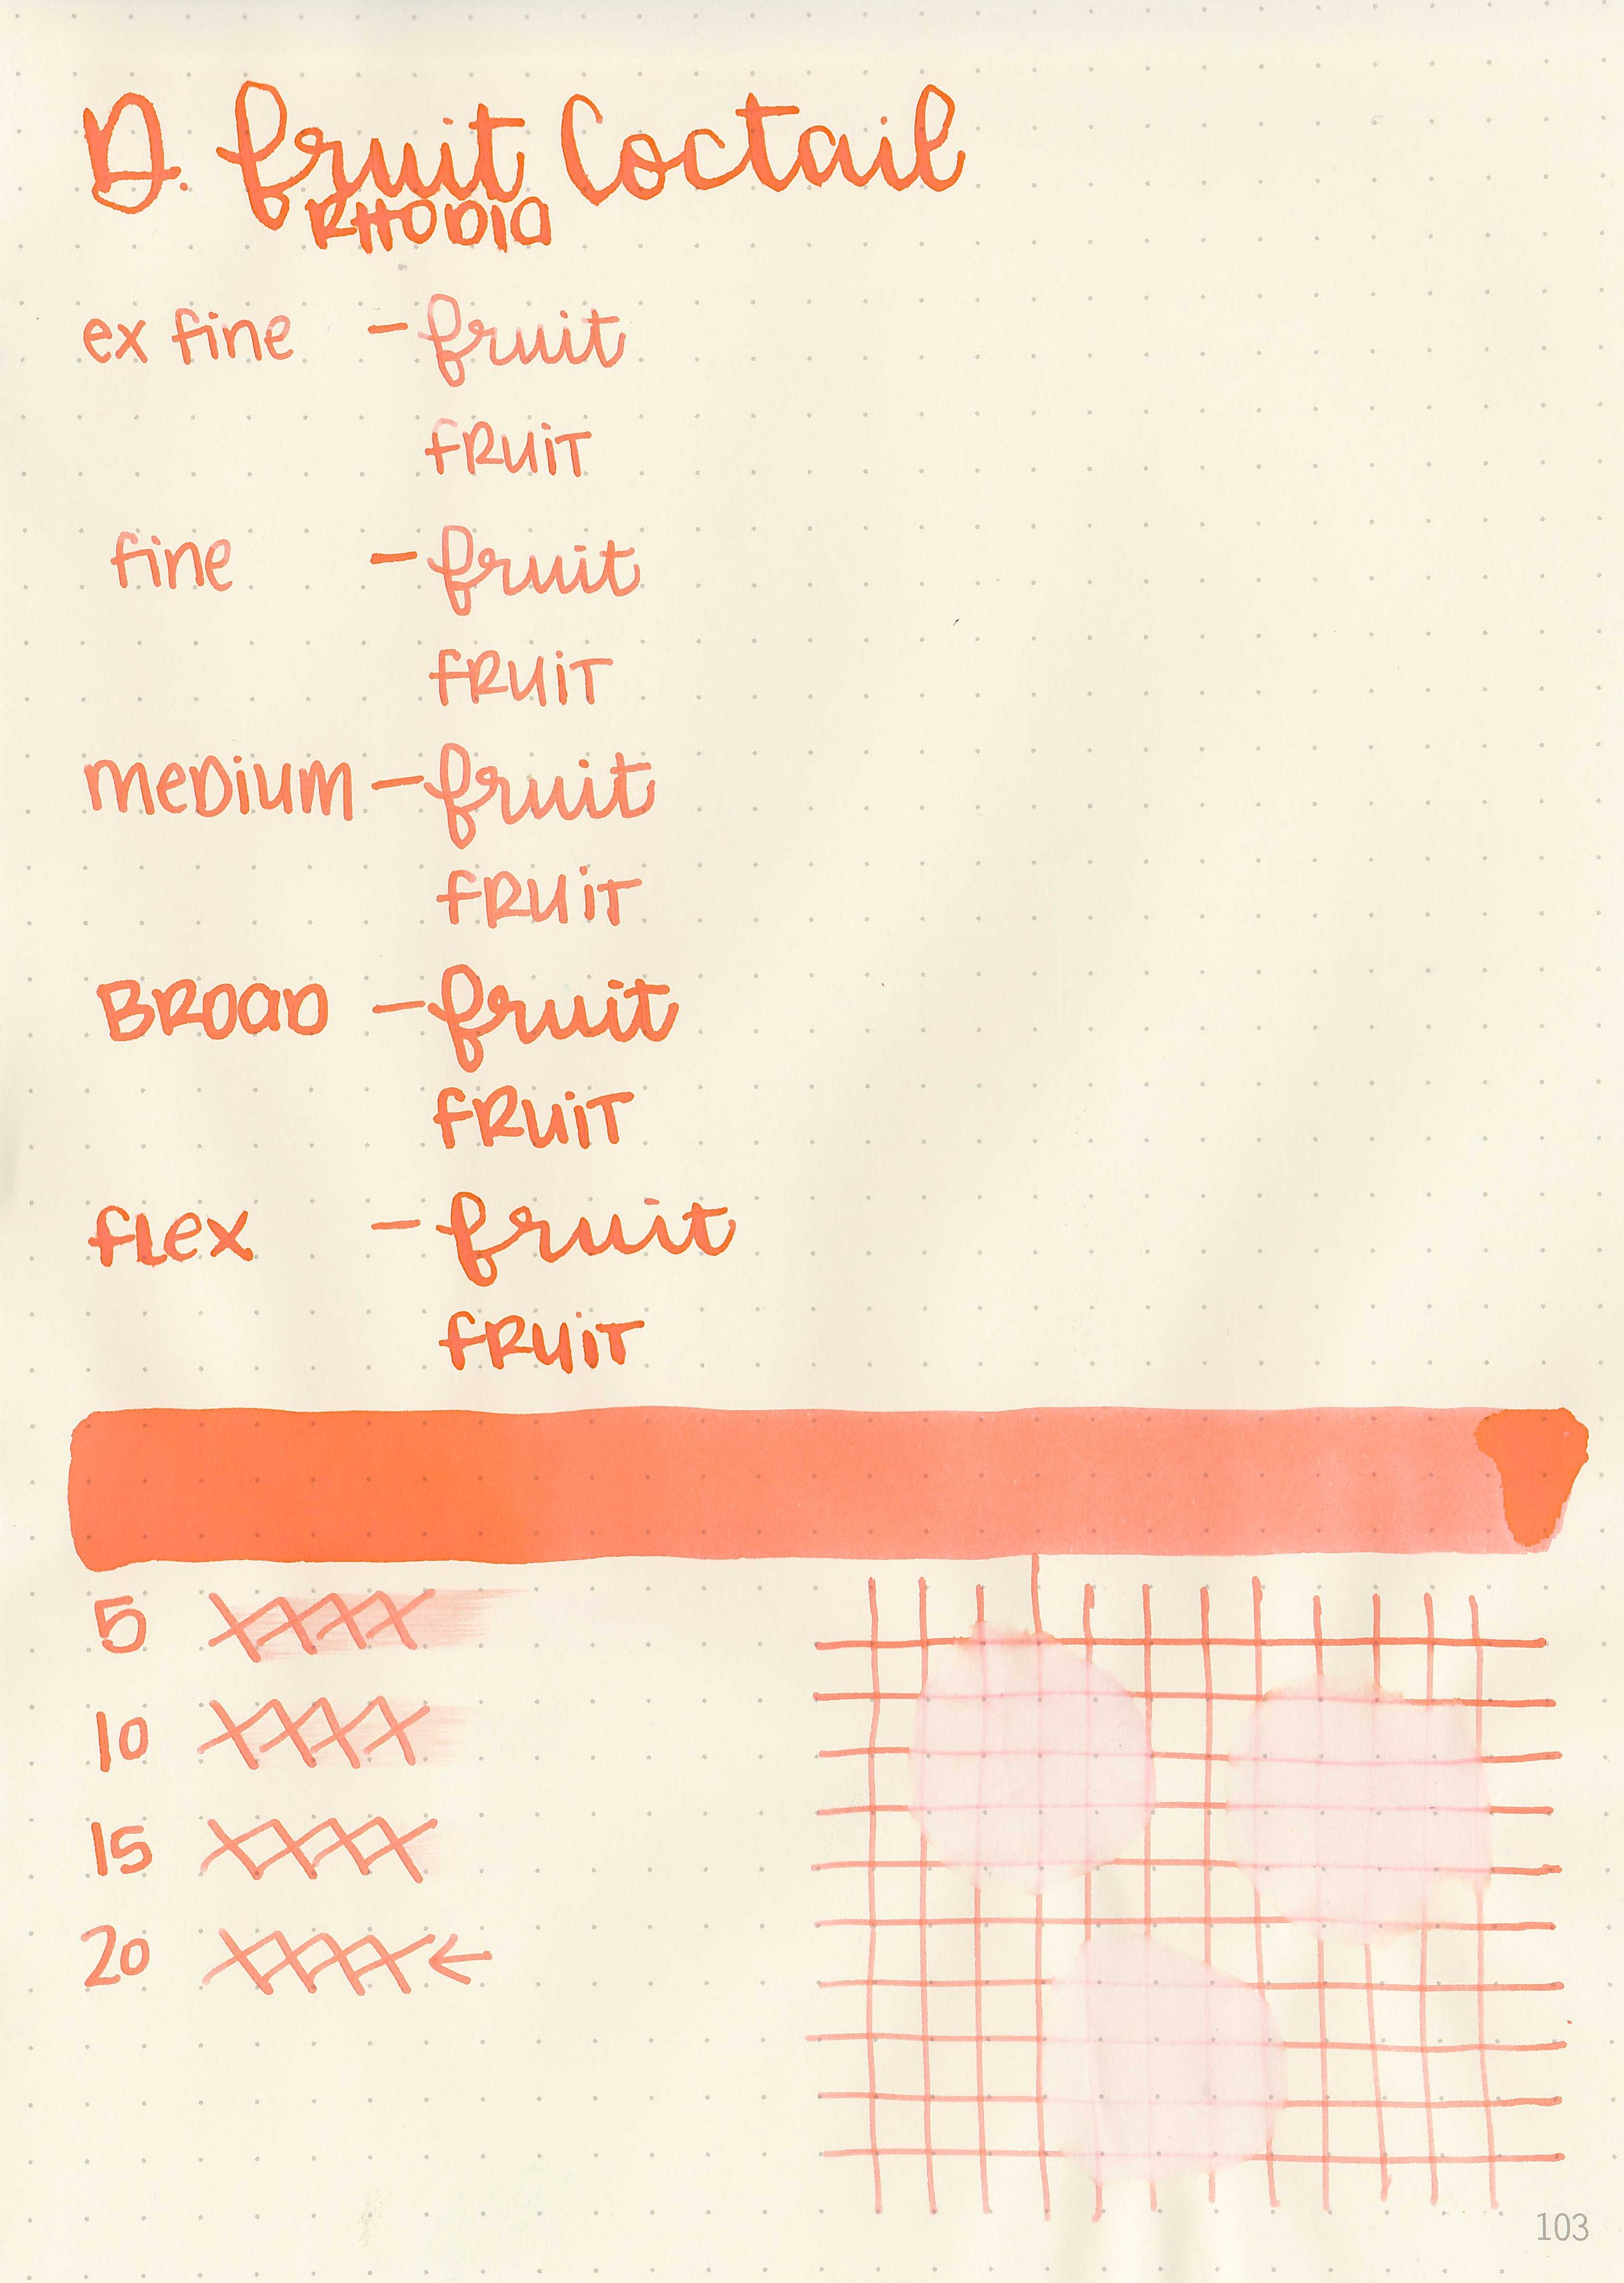 D. fruit Coctail
RHODIA
ex fine - fruit
FRUIT
fine - fruit
FRUIT
MEDIUM - fruit
FRUIT
BROAD - fruit
FRUIT
FLEX - fruit
FRUIT
5
10
15
20
103